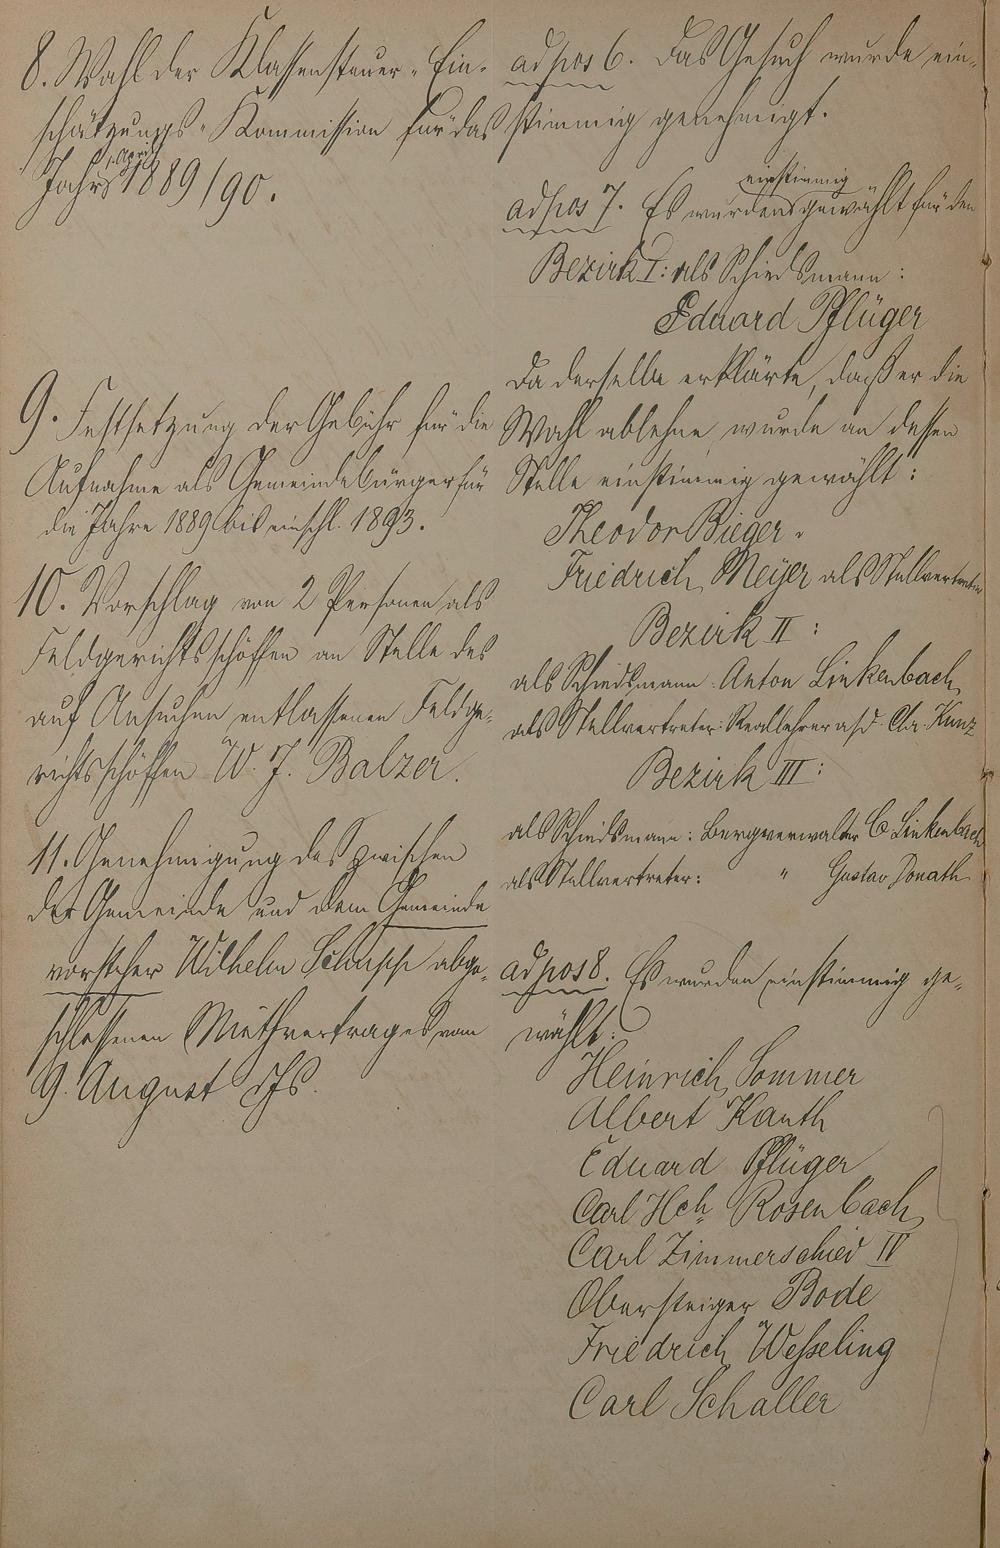 8. Wahl der Klassensteuer-Ein-
schätzungs-Kommission für das
1. April
Jahr 1889/90.
9. Festsetzung der Gebühr für die
Aufnahme als Gemeindebürger für
die Jahre 1889 bis einschl. 1893.
10. Vorschlag von 2 Personen als
Feldgerichtsschöffen an Stelle des
auf Ansuchen entlassenen Feldge-
richtsschöffen W. J. Balzer.
11. Genehmigung des zwischen
der Gemeinde und dem Gemeinde
vorsteher Wilhelm Schupp abge-
schlossenen Miethvertrages vom
9. August ds.
ad pos 6. Das Gesuch wurde ein-
stimmig genehmigt.
einstimmig
ad pos 7. Es wurden gewählt für den
Bezirk I: als Schiedsmann:
Eduard Pflüger
Da derselbe erklärte, daß er die
Wahl ablehne wurde an dessen
Stelle einstimmig gewählt:
Theodor Bieger.
Friedrich Meijer als Stellvertreter
Bezirk II:
als Schiedsmann Anton Linkenbach
als Stellvertreter: Reallehrer a/d. Chr. Kunz
Bezirk III:
als Schiedsmann: Bergverwalter C Linkenbach
als Stellvertreter: " Gustav Donath
ad pos 8. Es wurden einstimmig ge-
wählt:
Heinrich Sommer
Albert Kauth
Eduard Pflüger
Carl Hch Rosenbach
Carl Zimmerschied IV
Obersteiger Bode
Friedrich Weßeling
Carl Schaller